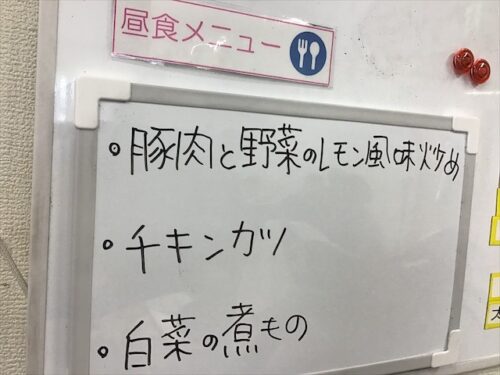 昼食メニュー
・豚肉と野菜のレモン風味炒め
・チキンカツ
・白菜の煮もの